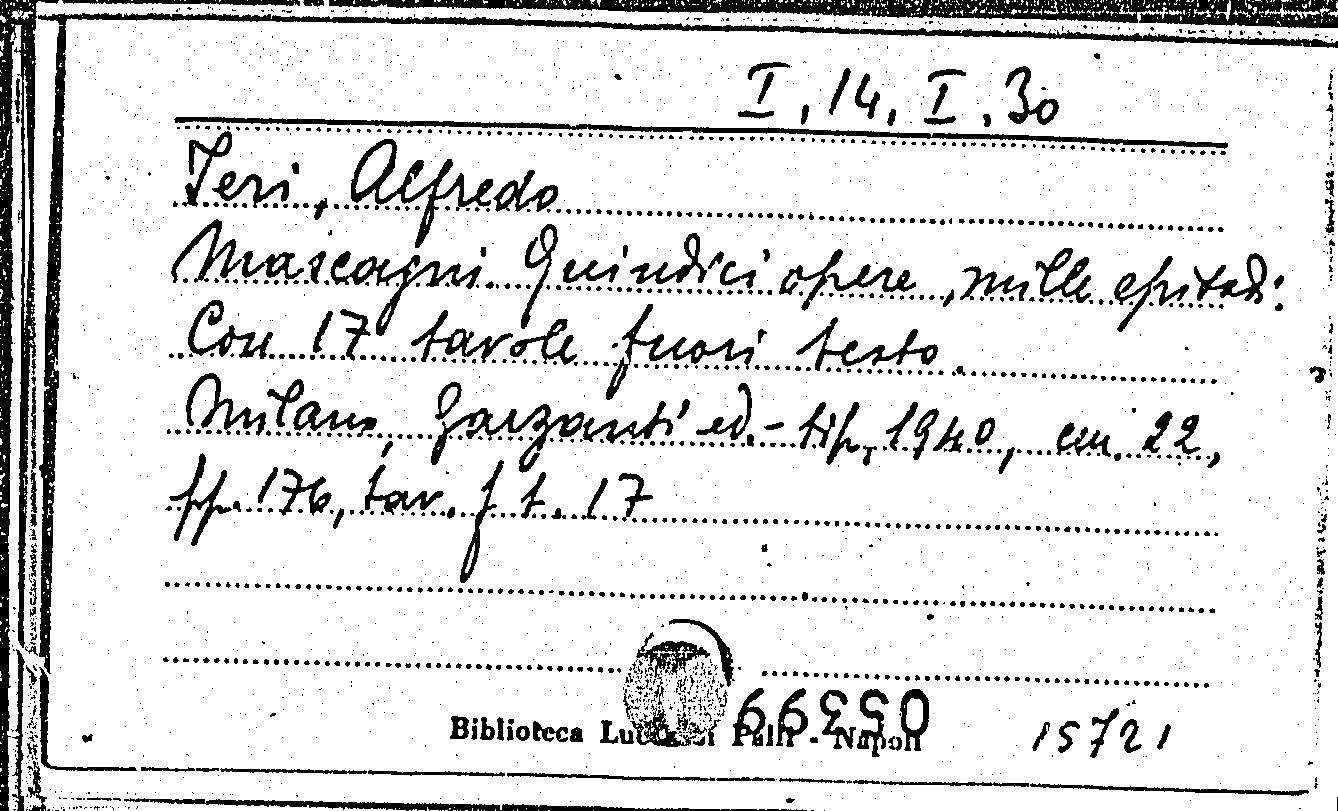 I, 14, I, 30
Jeri, Alfredo
Mascagni. Quindici opere, mille episodi:
Con 17 tavole fuori testo.
Milano, Garzanti ed.-tip, 1940, cm. 22,
pp. 176, tav. f t. 17
Biblioteca Lucchesi Palli - Napoli 15721